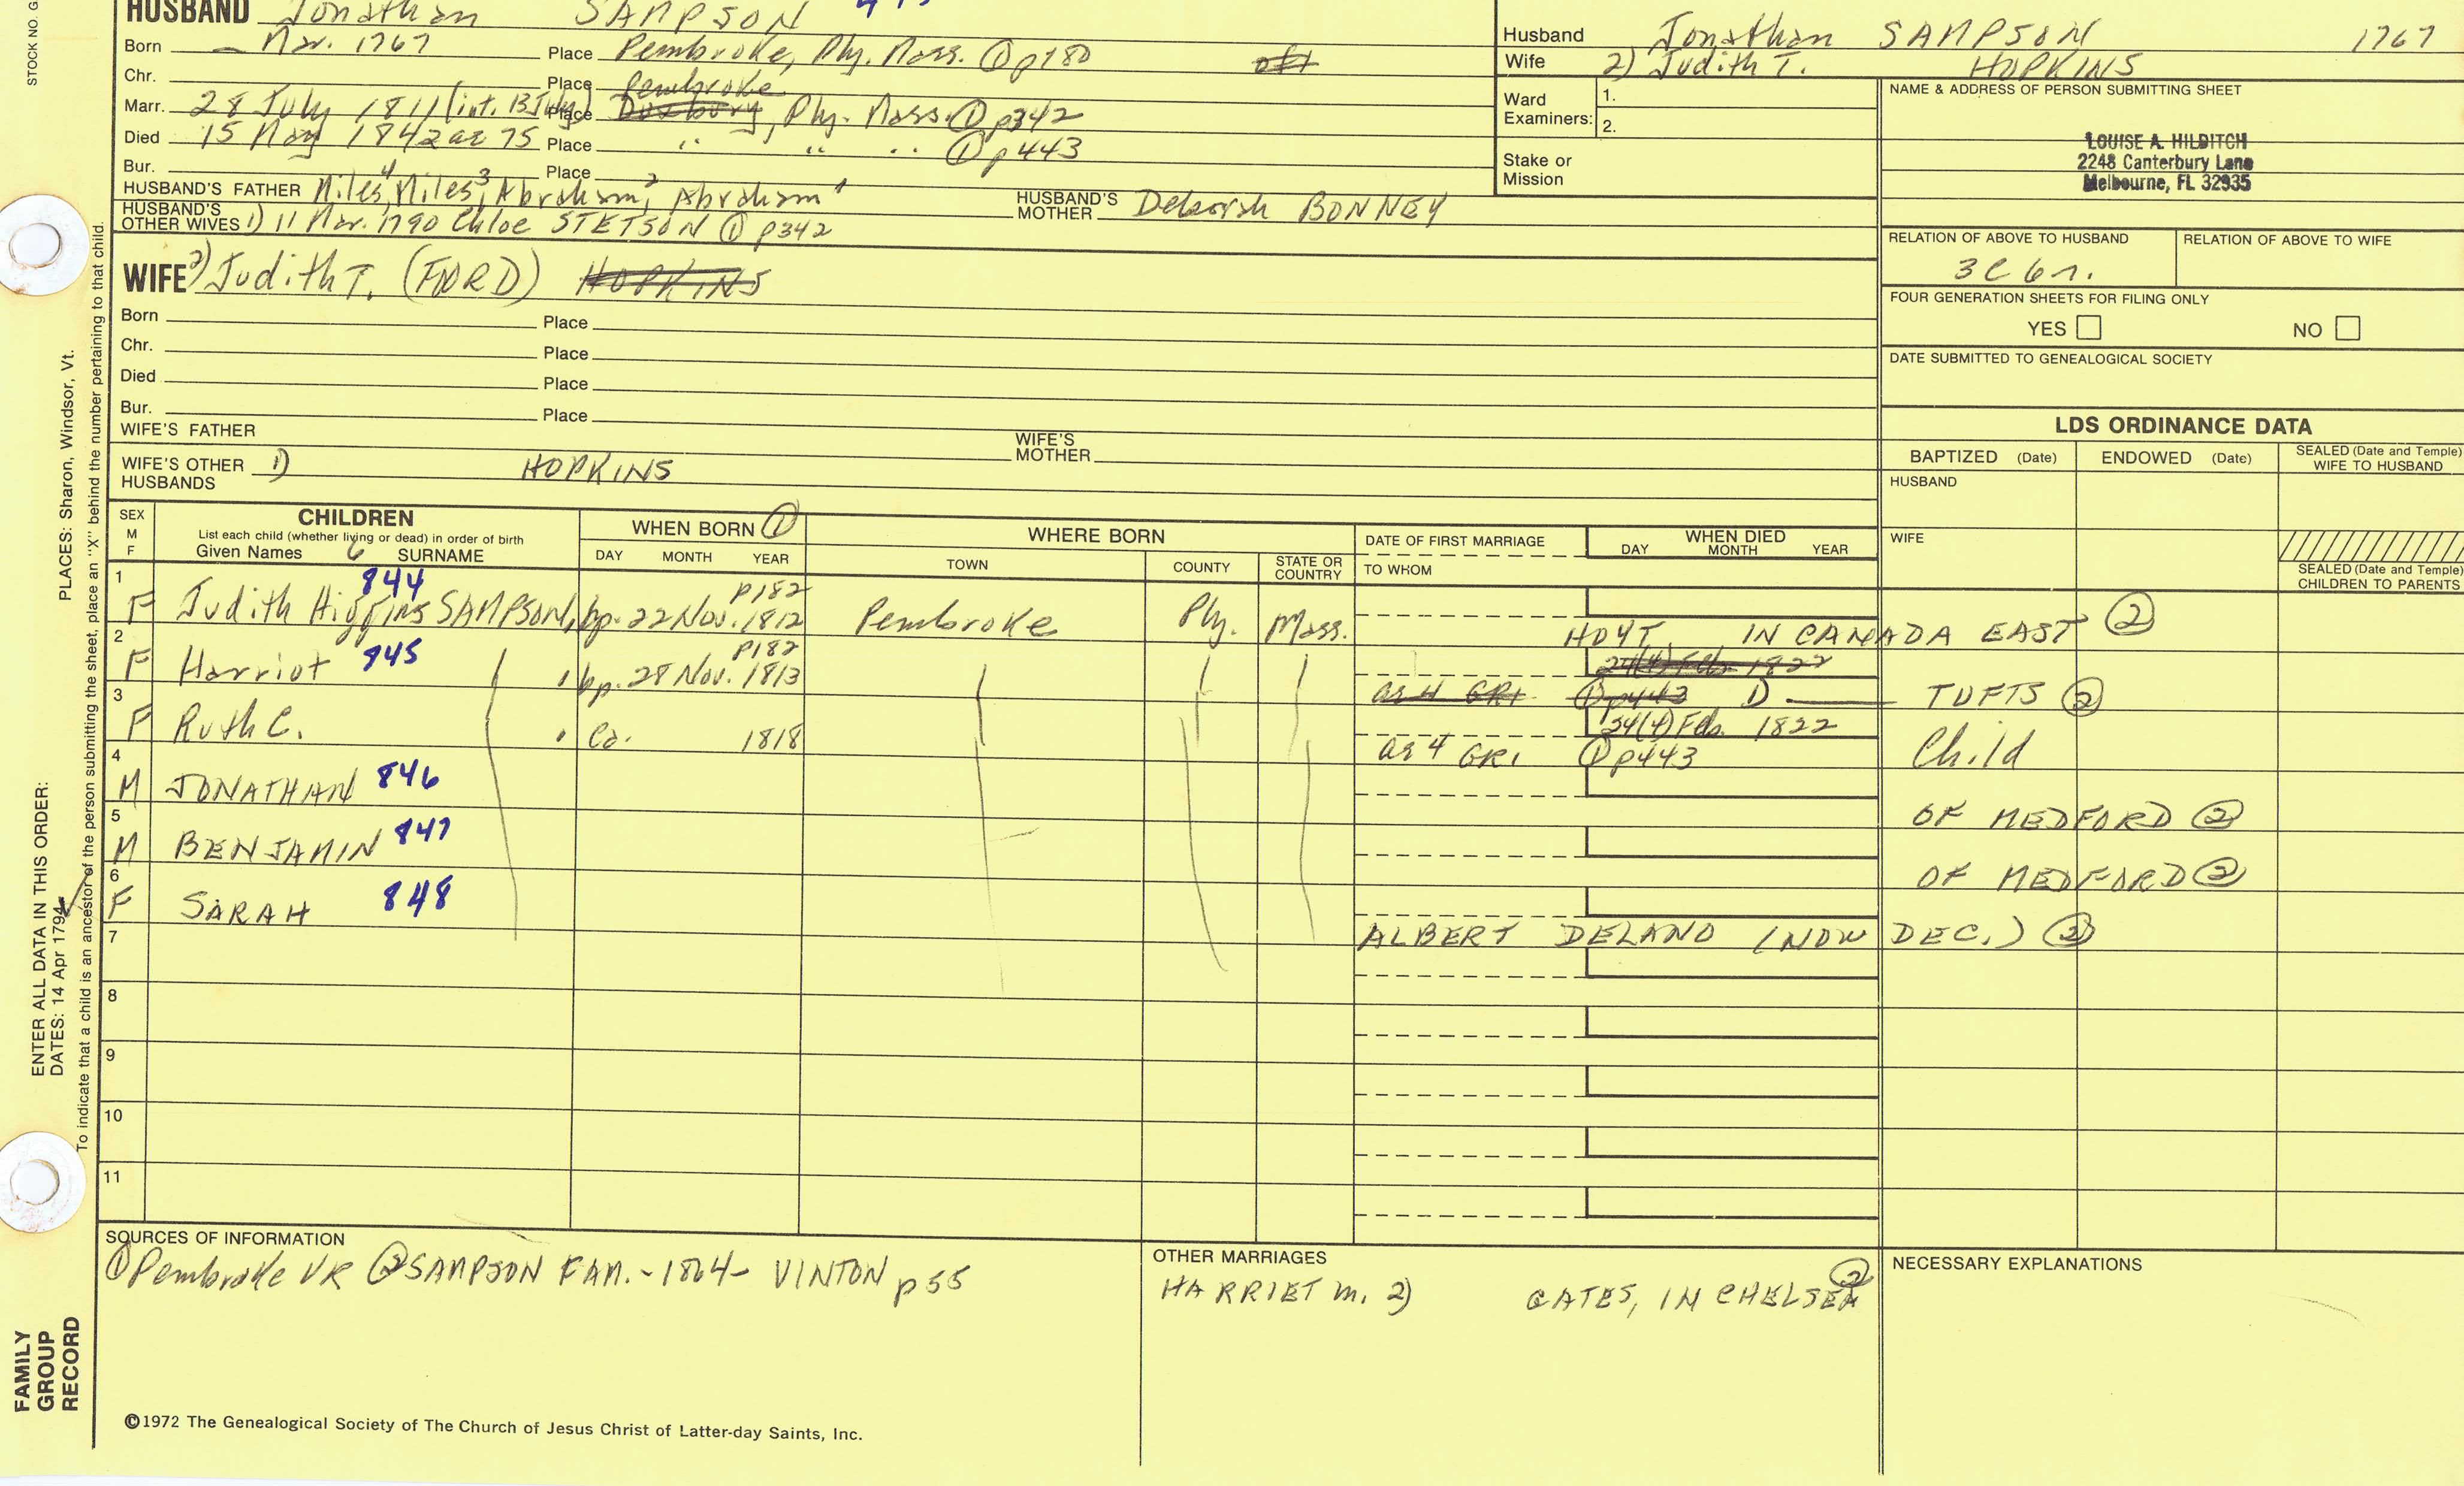 HUSBAND Jonathan SAMPSON
Born — Mar. 1767 Place Pembroke, Ply. Mass. ① p180
Chr. Place Pembroke
Marr. 28 July 1811 (int. 13 July) Place Duxbury, Ply. Mass. ① p342
Died 15 May 1842 ae 75 Place " " " ① p443
Bur. Place
HUSBAND'S FATHER Miles⁴, Miles³, Abraham², Abraham¹ HUSBAND'S MOTHER Deborah BONNEY
HUSBAND'S OTHER WIVES 1) 11 Mar. 1790 Chloe STETSON ① p342
WIFE 2) Judith T. (FORD) HOPKINS
Born Place
Chr. Place
Died Place
Bur. Place
WIFE'S FATHER WIFE'S MOTHER
WIFE'S OTHER HUSBANDS 1) HOPKINS
Husband Jonathan SAMPSON 1767
Wife 2) Judith T. HOPKINS
Ward Examiners: 1.
2.
Stake or Mission
NAME & ADDRESS OF PERSON SUBMITTING SHEET
LOUISE A. HILDITCH
2248 Canterbury Lane
Melbourne, FL 32935
RELATION OF ABOVE TO HUSBAND RELATION OF ABOVE TO WIFE
3C 6r.
FOUR GENERATION SHEETS FOR FILING ONLY
YES NO
DATE SUBMITTED TO GENEALOGICAL SOCIETY
LDS ORDINANCE DATA
BAPTIZED (Date) ENDOWED (Date) SEALED (Date and Temple) WIFE TO HUSBAND
HUSBAND
WIFE
SEALED (Date and Temple) CHILDREN TO PARENTS
SEX M F CHILDREN WHEN BORN ① WHERE BORN DATE OF FIRST MARRIAGE WHEN DIED
List each child (whether living or dead) in order of birth
Given Names 6 SURNAME DAY MONTH YEAR TOWN COUNTY STATE OR COUNTRY TO WHOM DAY MONTH YEAR
1 F Judith Higgins SAMPSON, 844 bp. 22 Nov. 1812 p182 Pembroke Ply. Mass. HOYT, IN CANADA EAST ②
2 F Harriot 845 bp. 28 Nov. 1813 p182 24(4) Feb. 1822 ae 4 GR1 ① p443 1) — TUFTS ②
3 F Ruth C. Ca. 1818 24(4) Feb. 1822 ae 4 GR1 ① p443 Child
4 M JONATHAN 846 OF MEDFORD ②
5 M BENJAMIN 847 OF MEDFORD ②
6 F SARAH 848 ALBERT DELANO (NOW DEC.) ②
7
8
9
10
11
SOURCES OF INFORMATION
① Pembroke VR ② SAMPSON FAM. - 1864 - VINTON p55
OTHER MARRIAGES
HARRIET m. 2) GATES, IN CHELSEA ②
NECESSARY EXPLANATIONS
©1972 The Genealogical Society of The Church of Jesus Christ of Latter-day Saints, Inc.
STOCK NO. G
PLACES: Sharon, Windsor, Vt.
ENTER ALL DATA IN THIS ORDER:
DATES: 14 Apr 1794
To indicate that a child is an ancestor of the person submitting the sheet, place an "X" behind the number pertaining to that child.
FAMILY
GROUP
RECORD